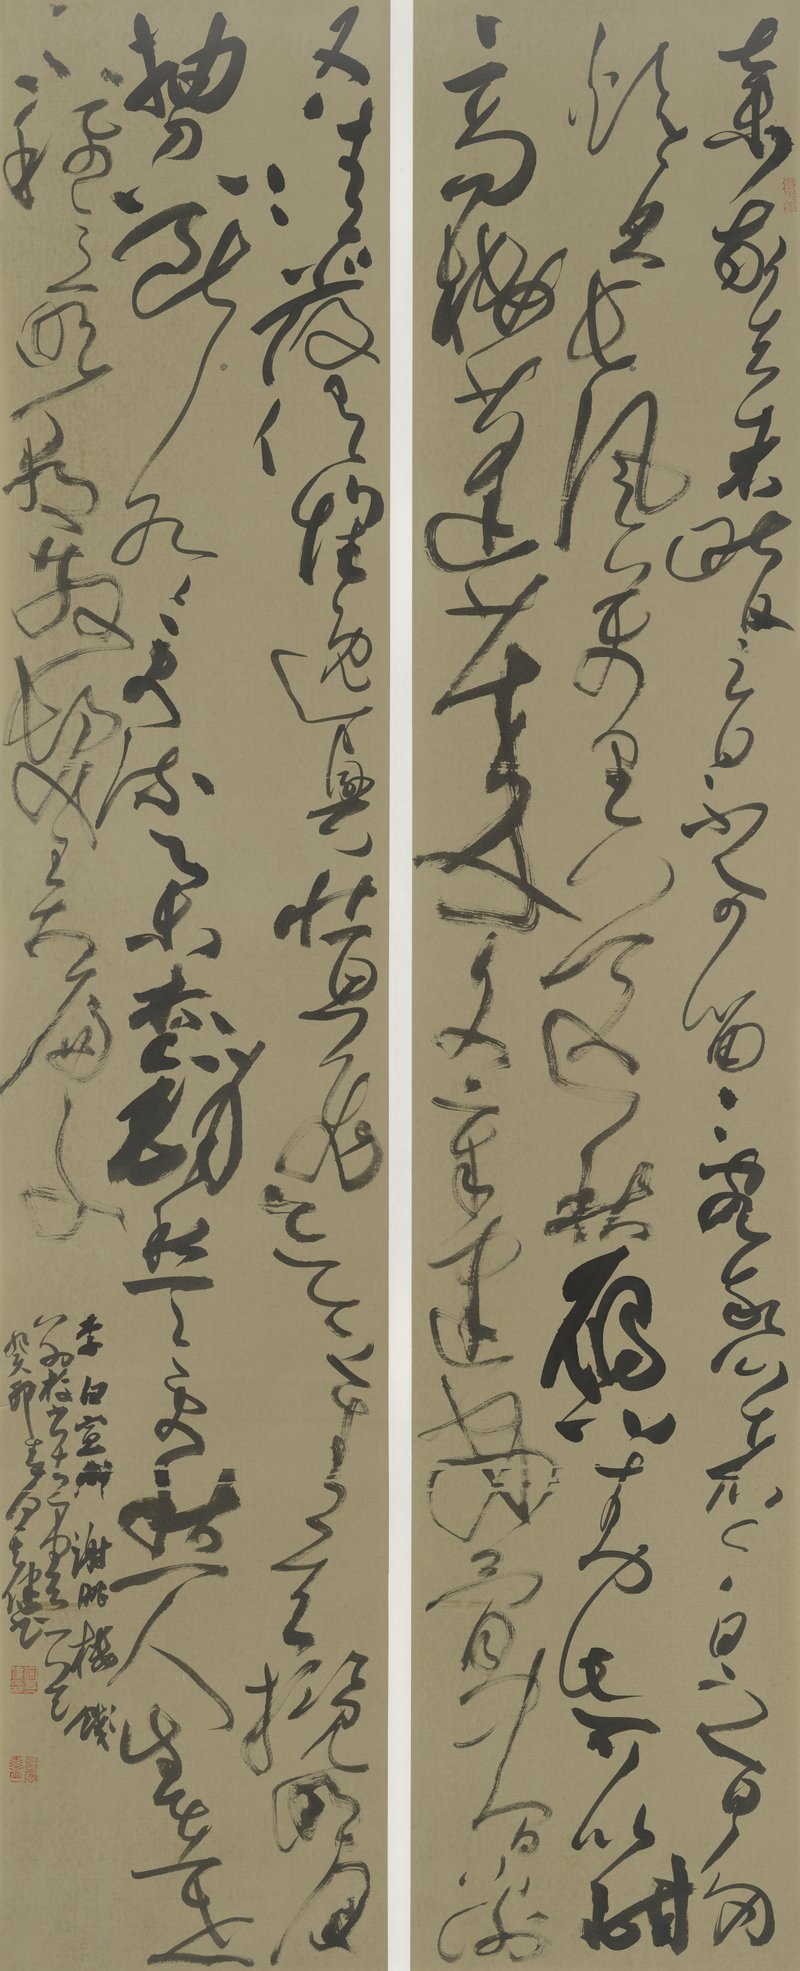 棄我去者昨日之日不可留亂我心者今日之日多
煩憂長風萬里送秋雁對此可以酣
高樓蓬萊文章建安骨中間小謝
又清發俱懷逸興壯思飛欲上青天攬明月
抽刀斷水水更流舉杯銷愁愁更愁人生在世
不稱意明朝散髮弄扁舟
李白宣州謝朓樓餞
別校書叔雲
癸卯春月